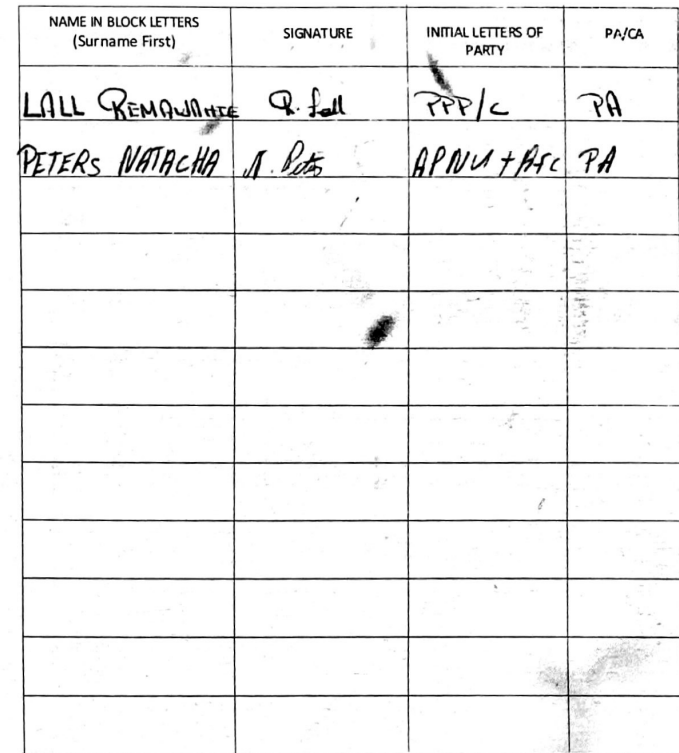 NAME IN BLOCK LETTERS (Surname First) SIGNATURE INITIAL LETTERS OF PARTY PA/CA
LALL REMAWANTIE R. Lall PPP/C PA
PETERS NATACHA N. Peters APNU + AFC PA